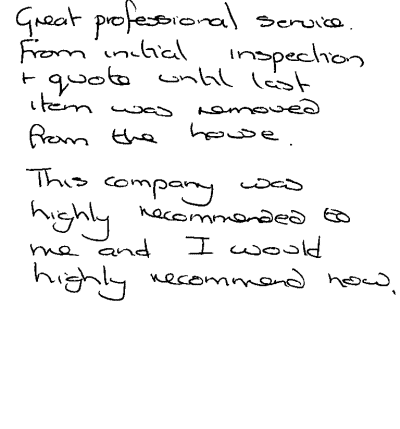 Great professional service.
From initial inspection
+ quote until last
item was removed
from the house.
This company was
highly recommended to
me and I would
highly recommend now.